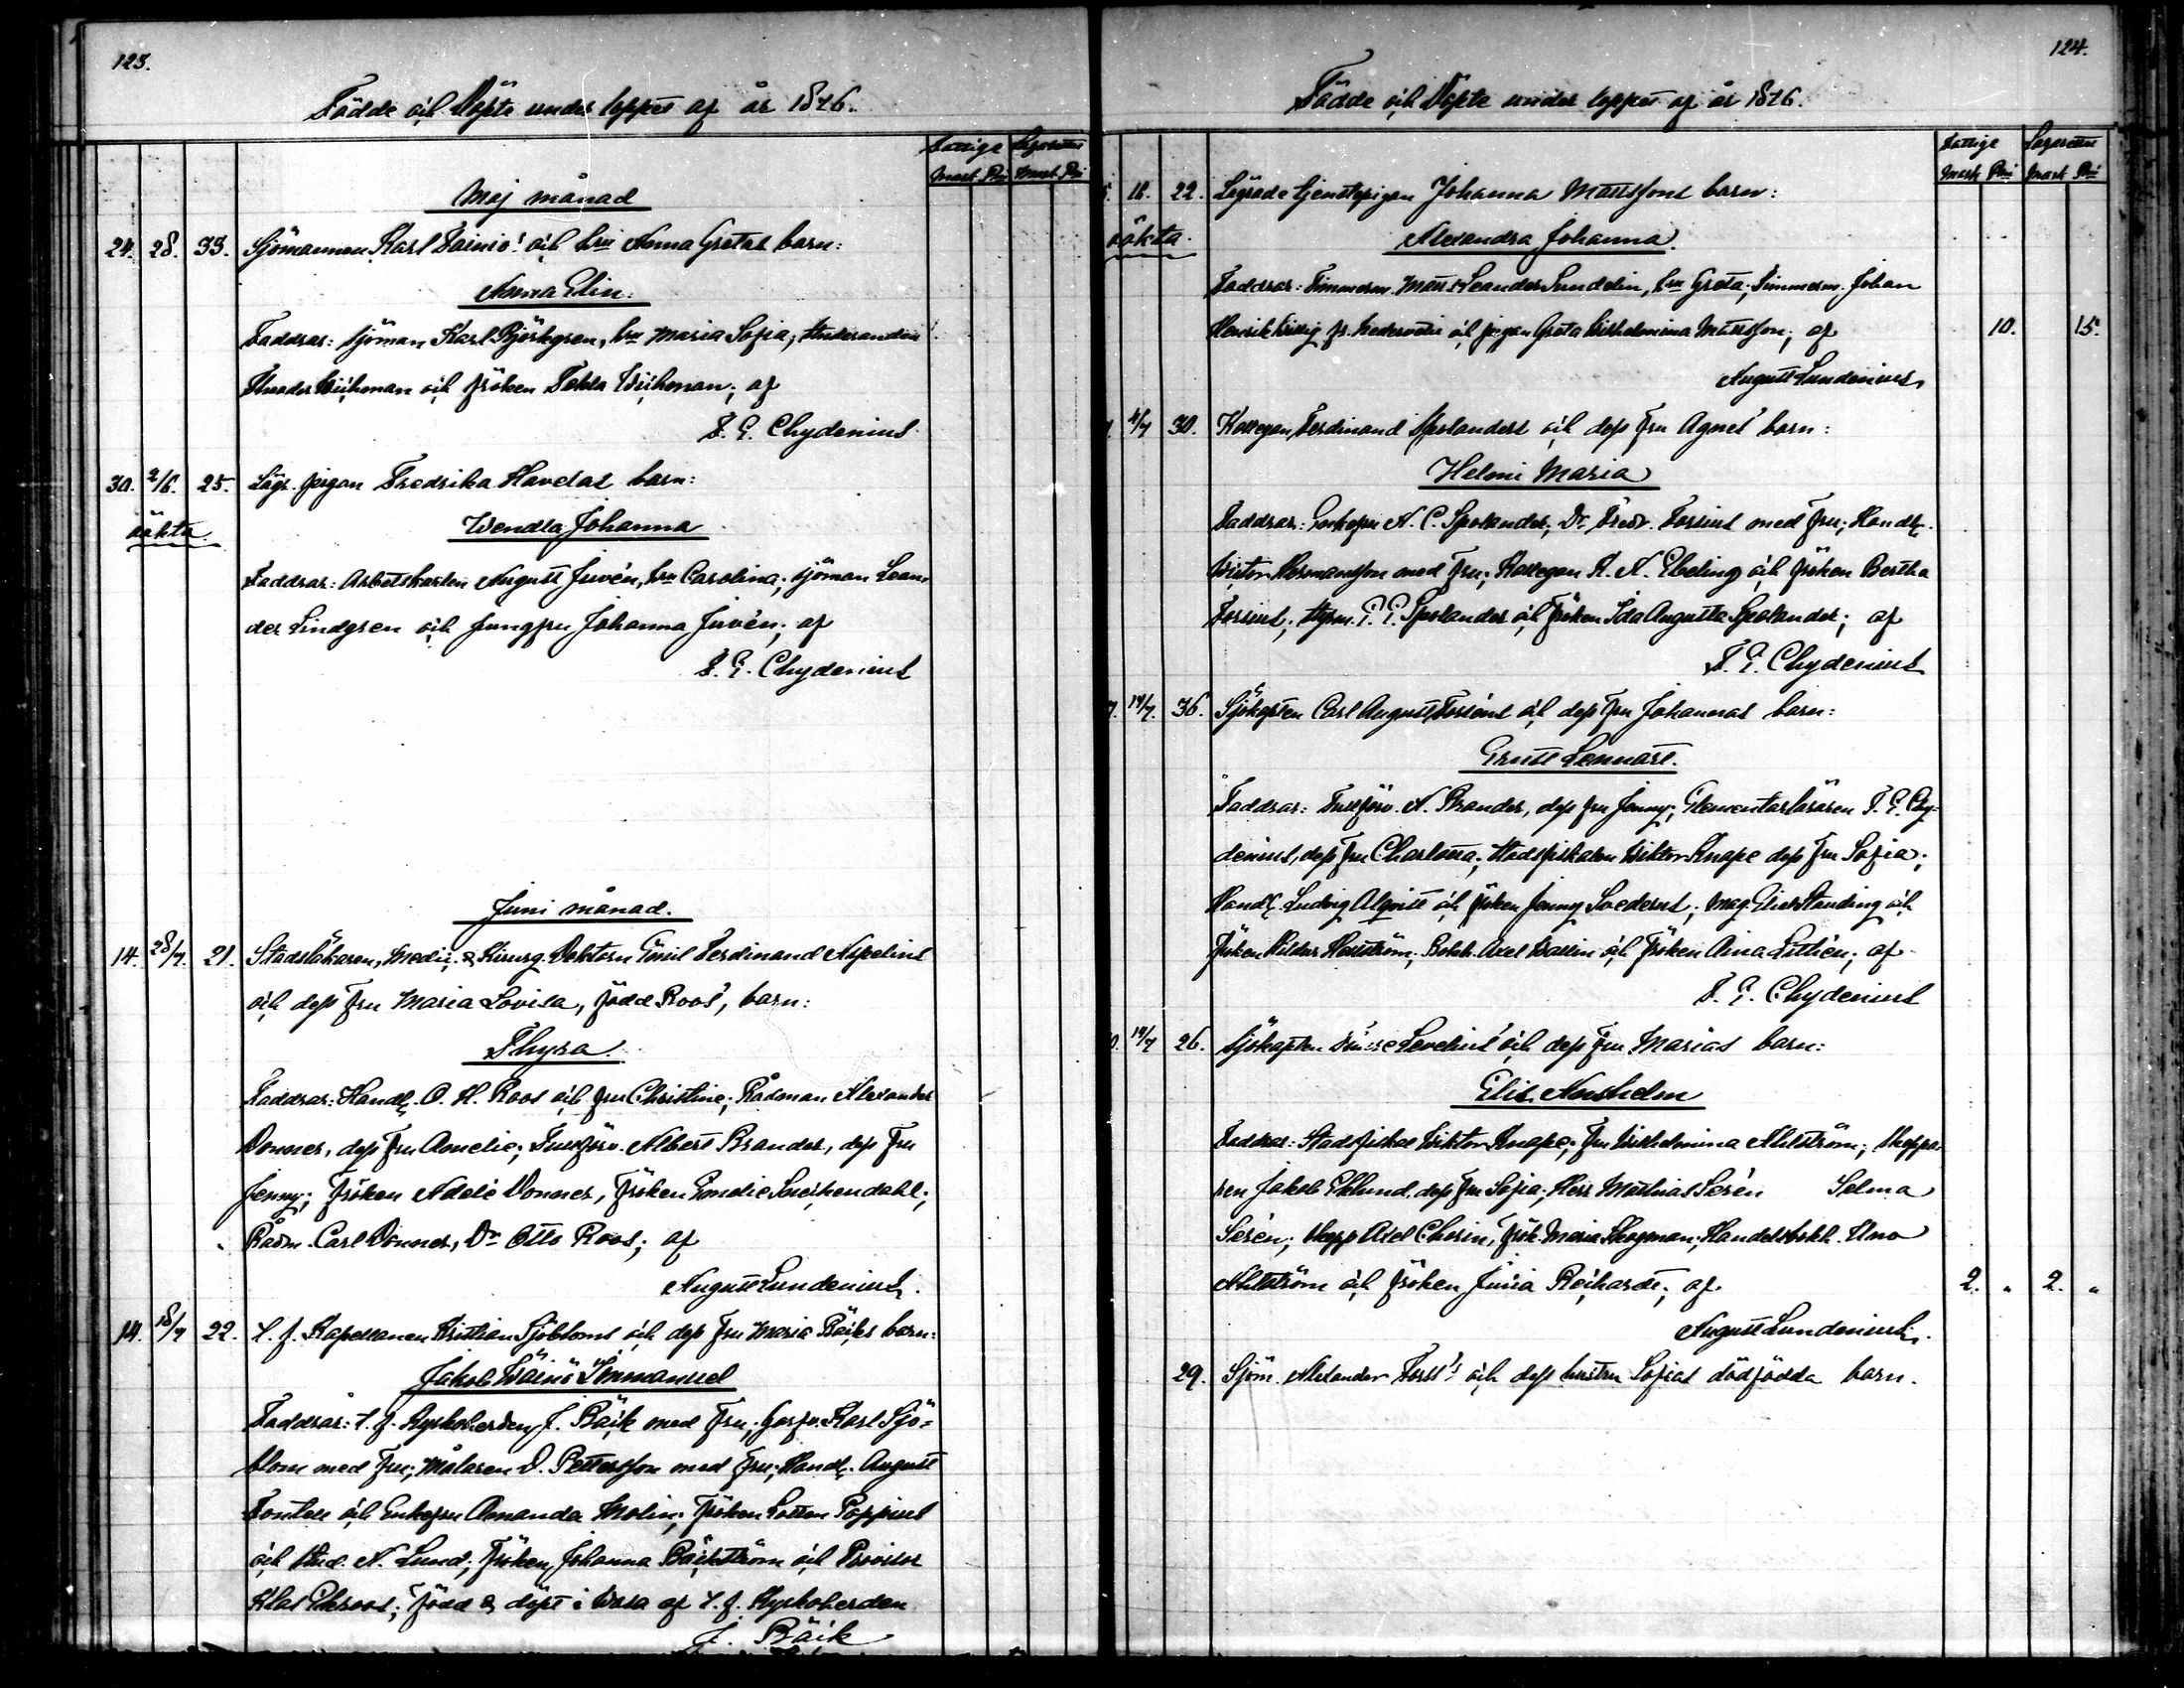 123.
Födde och Döpte under loppet af år 1876.
Fattige Lazarettet
Mark Pni Mark Pni
Maj månad
24. 28. 33. Sjömannen Karl Fainio's och hru Anna Gretas barn:
Anna Elin.
Faddrar: Sjöman Karl Björkgren, hru Maria Sofia, Studeranden
Theodor Wichman och fröken Tekla Wichman; af
F. E. Chydenius
30. 2/6. 25. Lägr. pigan Fredrika Havelas barn:
oäkta.
Wendla Johanna
Faddrar: Arbetskarlen August Juvén, hru Carolina; sjöman Lean-
der Lindgren och jungfru Johanna Juvén; af
F. E. Chydenius
Juni månad.
14. 28/7. 21. Stadsläkaren, Medic. & Kirurg. Doktorn Emil Ferdinand Aspelins
och dess fru Maria Lovisa, född Roos', barn:
Thyra.
Faddrar: Handl. O. H. Roos och fru Christine; Rådman Alexander
Donner, dess fru Amelie; Tullförv. Albert Brander, dess fru
Jenny; Fröken Adele Donner, Fröken Emelie Sneckendahl;
Rådm. Carl Donner, Dr Otto Roos; af
August Lundenius.
14. 18/7 22. t. f. Kapellanen Kristian Sjöbloms och dess fru Maria Bäcks barn:
Jakob Wäinö Immanuel
Faddrar: t. f. Kyrkoherden J. Bäck med Fru; Garfv. Karl Sjö-
blom med Fru; Målaren D. Pettersson med Fru; Handl. August
Fontell och Enkefru Amanda Molin; Fröken Lotten Poppius
och Stud. A. Lund; Fröken Johanna Bäckström och Provisor
Klas Ekroos; född & döpt i Wasa af t. f. Kyrkoherden
J. Bäck
124.
Födde och Döpte under loppet af år 1876.
Fattige Lazarettet
Mark Pni Mark Pni
18. 22. Lägrade tjenstepigan Johanna Mattssons barn:
oäkta.
Alexandra Johanna.
Faddrar: Timmerm. Matts Leander Sundelin, hru Greta; Timmerm. Johan
Henrik Willig fr. Nedervetil och pigan Greta Wilhelmina Mattsson; af 10. 15.
August Lundenius.
4/7 30. Kollegan Ferdinand Spolanders och dess fru Agnes' barn:
Helmi Maria
Faddrar: Enkefru A. C. Spolander; Dr Fredr. Forsius med Fru; Handl.
Wictor Hermansson med Fru; Kollegan K. A. Ebeling och fröken Bertha
Forsius; Styrm. P. P. Spolander och Fröken Ida Augusta Spolander; af
F. E. Chydenius
14/7. 36. Sjökapten Carl August Forséns och dess fru Johannas barn:
Ernst Lennart.
Faddrar: Tullförv. A. Brander, dess fru Jenny; Elementarläraren F. E. Chy-
denius, dess fru Charlotta; Stadsfiskalen Wiktor Knape dess fru Sofia;
Handl. Ludvig Alqvist och fröken Jenny Svederus; Mag. Elis Standing och
fröken Hilder Hellström; Bokh. Axel Wallin och Fröken Aina Lithén; af
F. E. Chydenius
19/7 26. Sjökapten Levelius' och dess fru Marias barn:
Elis Anshelm
Faddrar: Stadsfiskal Wiktor Knape; Fru Wilhelmina Ahlström; Skeppa-
ren Jakob Eklund, dess fru Sofia; Herr Mathias Serén Selma
Serén; Skepp. Axel Chorin, Frök. Maria Skogman; Handelsbokh. Uno
Ahlström och fröken Junia Reichardt; af 2. " 2. "
August Lundenius.
29. Sjöm. Alexander Forss's och dess hustru Sofias dödfödda barn.